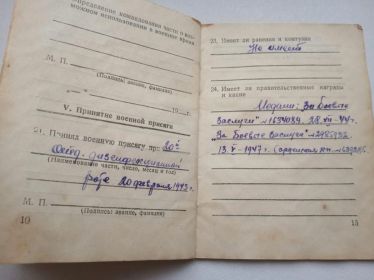 Определение командования части о воз-
можном использовании в военное время
М. П.
(Подпись: звание, фамилия)
19 г.
V. Принятие военной присяги
21. Принял военную присягу при 20й
(Наименование части, число, месяц и год)
роте 20 февраля 1943 г.
М. П.
(Подпись: звание, фамилия)
10
23. Имеет ли ранения и контузии
Не имеет
24. Имеет ли правительственные награды
и какие
Медали: "За боевые
заслуги" 28.VII-44г.
"За боевые заслуги"
13.V-1947г.
15